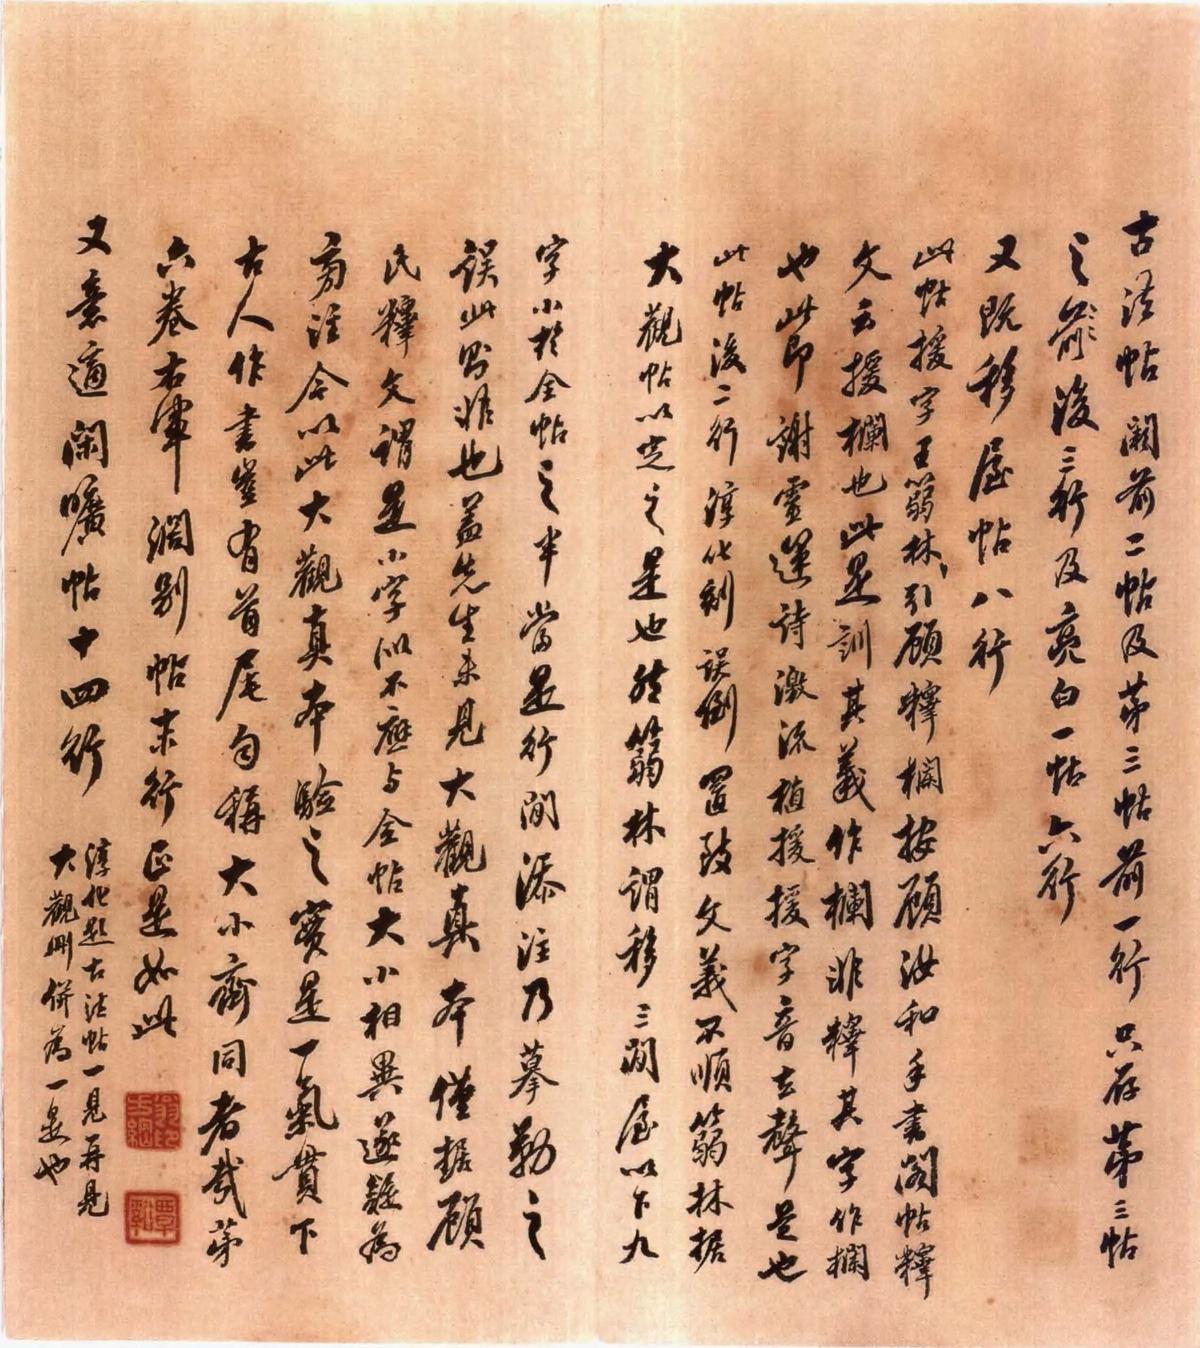 古法帖闕前二帖及苐三帖前一行只存苐三帖
之前後三行及亮白一帖六行
又既移屋帖八行
此帖援字王篛林引顧釋欄按顧汝和手書閣帖釋
文云援欄也此是訓其義作欄非釋其字作欄
也此即謝靈運詩激流植援援字音去聲是也
此帖後二行淳化刻誤倒置致文義不順篛林据
大觀帖以定之是也然篛林謂移三間屋以下九
字小於全帖之半當是行間添注乃摹勒之
誤此則非也葢先生未見大觀真本僅据顧
氏釋文謂是小字似不應与全帖大小相異遂疑為
旁注今以此大觀真本驗之實是一氣貫下
古人作書豈有首尾勻稱大小齊同者哉苐
六卷右軍闊别帖末行正是如此
又意適閑曠帖十四行
淳化題古法帖一見再見
大觀刪併為一是也
翁印方綱
覃谿